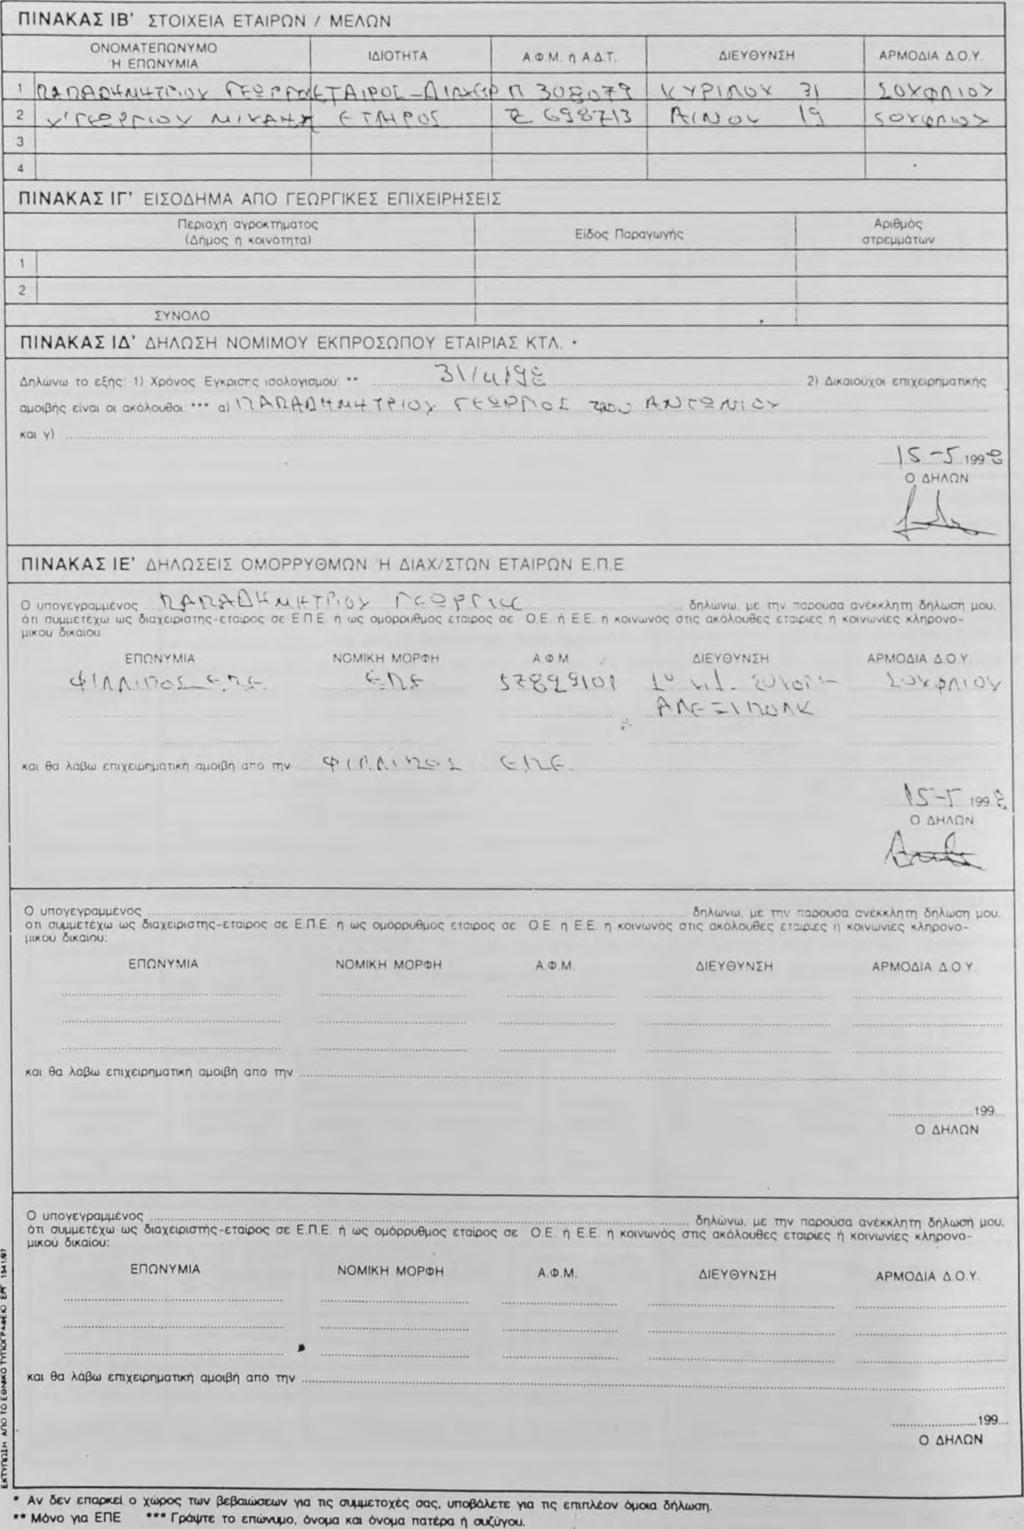 ΠΙΝΑΚΑΣ ΙΒ' ΣΤΟΙΧΕΙΑ ΕΤΑΙΡΩΝ / ΜΕΛΩΝ
ΟΝΟΜΑΤΕΠΩΝΥΜΟ Ή ΕΠΩΝΥΜΙΑ ΙΔΙΟΤΗΤΑ Α.Φ.Μ. ή Α.Δ.Τ. ΔΙΕΥΘΥΝΣΗ ΑΡΜΟΔΙΑ Δ.Ο.Υ.
1 ΠΑΠΑΔΗΜΗΤΡΙΟΥ ΕΤΑΙΡΟΣ-ΔΙΑΧΕΙΡ Π 308079 ΚΥΡΙΛΟΥ 31 ΣΟΥΦΛΙΟΥ
2 Χ'ΓΕΩΡΓΙΟΥ ΜΙΧΑΗΛ ΕΤΑΙΡΟΣ Ζ 698713 ΑΙΝΟΥ 19 ΣΟΥΦΛΙΟΥ
3
4
ΠΙΝΑΚΑΣ ΙΓ' ΕΙΣΟΔΗΜΑ ΑΠΟ ΓΕΩΡΓΙΚΕΣ ΕΠΙΧΕΙΡΗΣΕΙΣ
Περιοχή αγροκτήματος (Δήμος ή κοινότητα) Είδος Παραγωγής Αριθμός στρεμμάτων
1
2
ΣΥΝΟΛΟ
ΠΙΝΑΚΑΣ ΙΔ' ΔΗΛΩΣΗ ΝΟΜΙΜΟΥ ΕΚΠΡΟΣΩΠΟΥ ΕΤΑΙΡΙΑΣ ΚΤΛ. *
Δηλώνω το εξής: 1) Χρόνος Εγκρισης ισολογισμού: ** 31/4/98 2) Δικαιούχοι επιχειρηματικής
αμοιβής είναι οι ακόλουθοι: *** α) ΠΑΠΑΔΗΜΗΤΡΙΟΥ ΓΕΩΡΓΙΟΣ του ΑΝΤΩΝΙΟΥ
και γ)
15-5 1998
Ο ΔΗΛΩΝ
ΠΙΝΑΚΑΣ ΙΕ' ΔΗΛΩΣΕΙΣ ΟΜΟΡΡΥΘΜΩΝ Ή ΔΙΑΧ/ΣΤΩΝ ΕΤΑΙΡΩΝ Ε.Π.Ε.
Ο υπογεγραμμένος ΠΑΠΑΔΗΜΗΤΡΙΟΥ δηλώνω, με την παρούσα ανέκκλητη δήλωση μου,
ότι συμμετέχω ως διαχειριστής-εταίρος σε Ε.Π.Ε. ή ως ομόρρυθμος εταίρος σε Ο.Ε. ή Ε.Ε. ή κοινωνός στις ακόλουθες εταιρίες ή κοινωνίες κληρονο-
μικού δικαίου:
ΕΠΩΝΥΜΙΑ ΝΟΜΙΚΗ ΜΟΡΦΗ Α.Φ.Μ. ΔΙΕΥΘΥΝΣΗ ΑΡΜΟΔΙΑ Δ.Ο.Υ.
ΦΙΛΛΙΠΟΣ Ε.Π.Ε. ΕΠΕ ΣΟΥΦΛΙΟΥ
και θα λάβω επιχειρηματική αμοιβή από την ΦΙΛΛΙΠΟΣ Ε.Π.Ε.
15-5 1998
Ο ΔΗΛΩΝ
Ο υπογεγραμμένος δηλώνω, με την παρούσα ανέκκλητη δήλωση μου,
ότι συμμετέχω ως διαχειριστής-εταίρος σε Ε.Π.Ε. ή ως ομόρρυθμος εταίρος σε Ο.Ε. ή Ε.Ε. ή κοινωνός στις ακόλουθες εταιρίες ή κοινωνίες κληρονο-
μικού δικαίου:
ΕΠΩΝΥΜΙΑ ΝΟΜΙΚΗ ΜΟΡΦΗ Α.Φ.Μ. ΔΙΕΥΘΥΝΣΗ ΑΡΜΟΔΙΑ Δ.Ο.Υ.
και θα λάβω επιχειρηματική αμοιβή από την
199...
Ο ΔΗΛΩΝ
Ο υπογεγραμμένος δηλώνω, με την παρούσα ανέκκλητη δήλωσή μου,
ότι συμμετέχω ως διαχειριστής-εταίρος σε Ε.Π.Ε. ή ως ομόρρυθμος εταίρος σε Ο.Ε. ή Ε.Ε. ή κοινωνός στις ακόλουθες εταιρίες ή κοινωνίες κληρονο-
μικού δικαίου:
ΕΠΩΝΥΜΙΑ ΝΟΜΙΚΗ ΜΟΡΦΗ Α.Φ.Μ. ΔΙΕΥΘΥΝΣΗ ΑΡΜΟΔΙΑ Δ.Ο.Υ.
και θα λάβω επιχειρηματική αμοιβή από την
199...
Ο ΔΗΛΩΝ
ΕΚΤΥΠΩΣΗ ΑΠΟ ΤΟ ΕΘΝΙΚΟ ΤΥΠΟΓΡΑΦΕΙΟ
* Αν δεν επαρκεί ο χώρος των βεβαιώσεων για τις συμμετοχές σας, υποβάλετε για τις επιπλέον όμοια δήλωση.
** Μόνο για ΕΠΕ *** Γράψτε το επώνυμο, όνομα και όνομα πατέρα ή συζύγου.